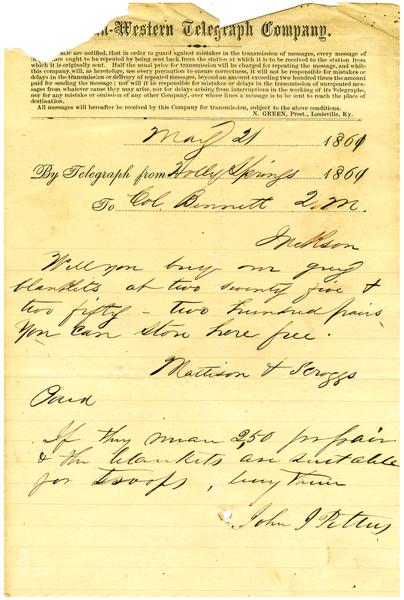 n-Western Telegraph Company.
are notified, that in order to guard against mistakes in the transmission of messages, every message of
ought to be repeated by being sent back from the station at which it is to be received to the station from
which it is originally sent. Half the usual price for transmission will be charged for repeating the message, and while
this company will, as heretofore, use every precaution to ensure correctness, it will not be responsible for mistakes or
delays in the transmission or delivery of repeated messages, beyond an amount exceeding two hundred times the amount
paid for sending the message; nor will it be responsible for mistakes or delays in the transmission of unrepeated mes-
sages from whatever cause they may arise, nor for delays arising from interruptions in the working of its Telegraphs,
nor for any mistake or omission of any other Company, over whose lines a message is to be sent to reach the place of
destination.
All messages will hereafter be received by this Company for transmission, subject to the above conditions.
N. GREEN, Prest., Louisville, Ky.
May 21 1861
By Telegraph from Holly Springs 1861
To Col. Bennett Q.M.
Jackson
Will you buy our grey
blankets at two seventy five &
two fifty - two hundred pairs
You can store here free.
Mattison & Scroggs
Paid
If they mean 2,50 pr pair
& the blankets are suitable
for troops, buy them
John J Pettus